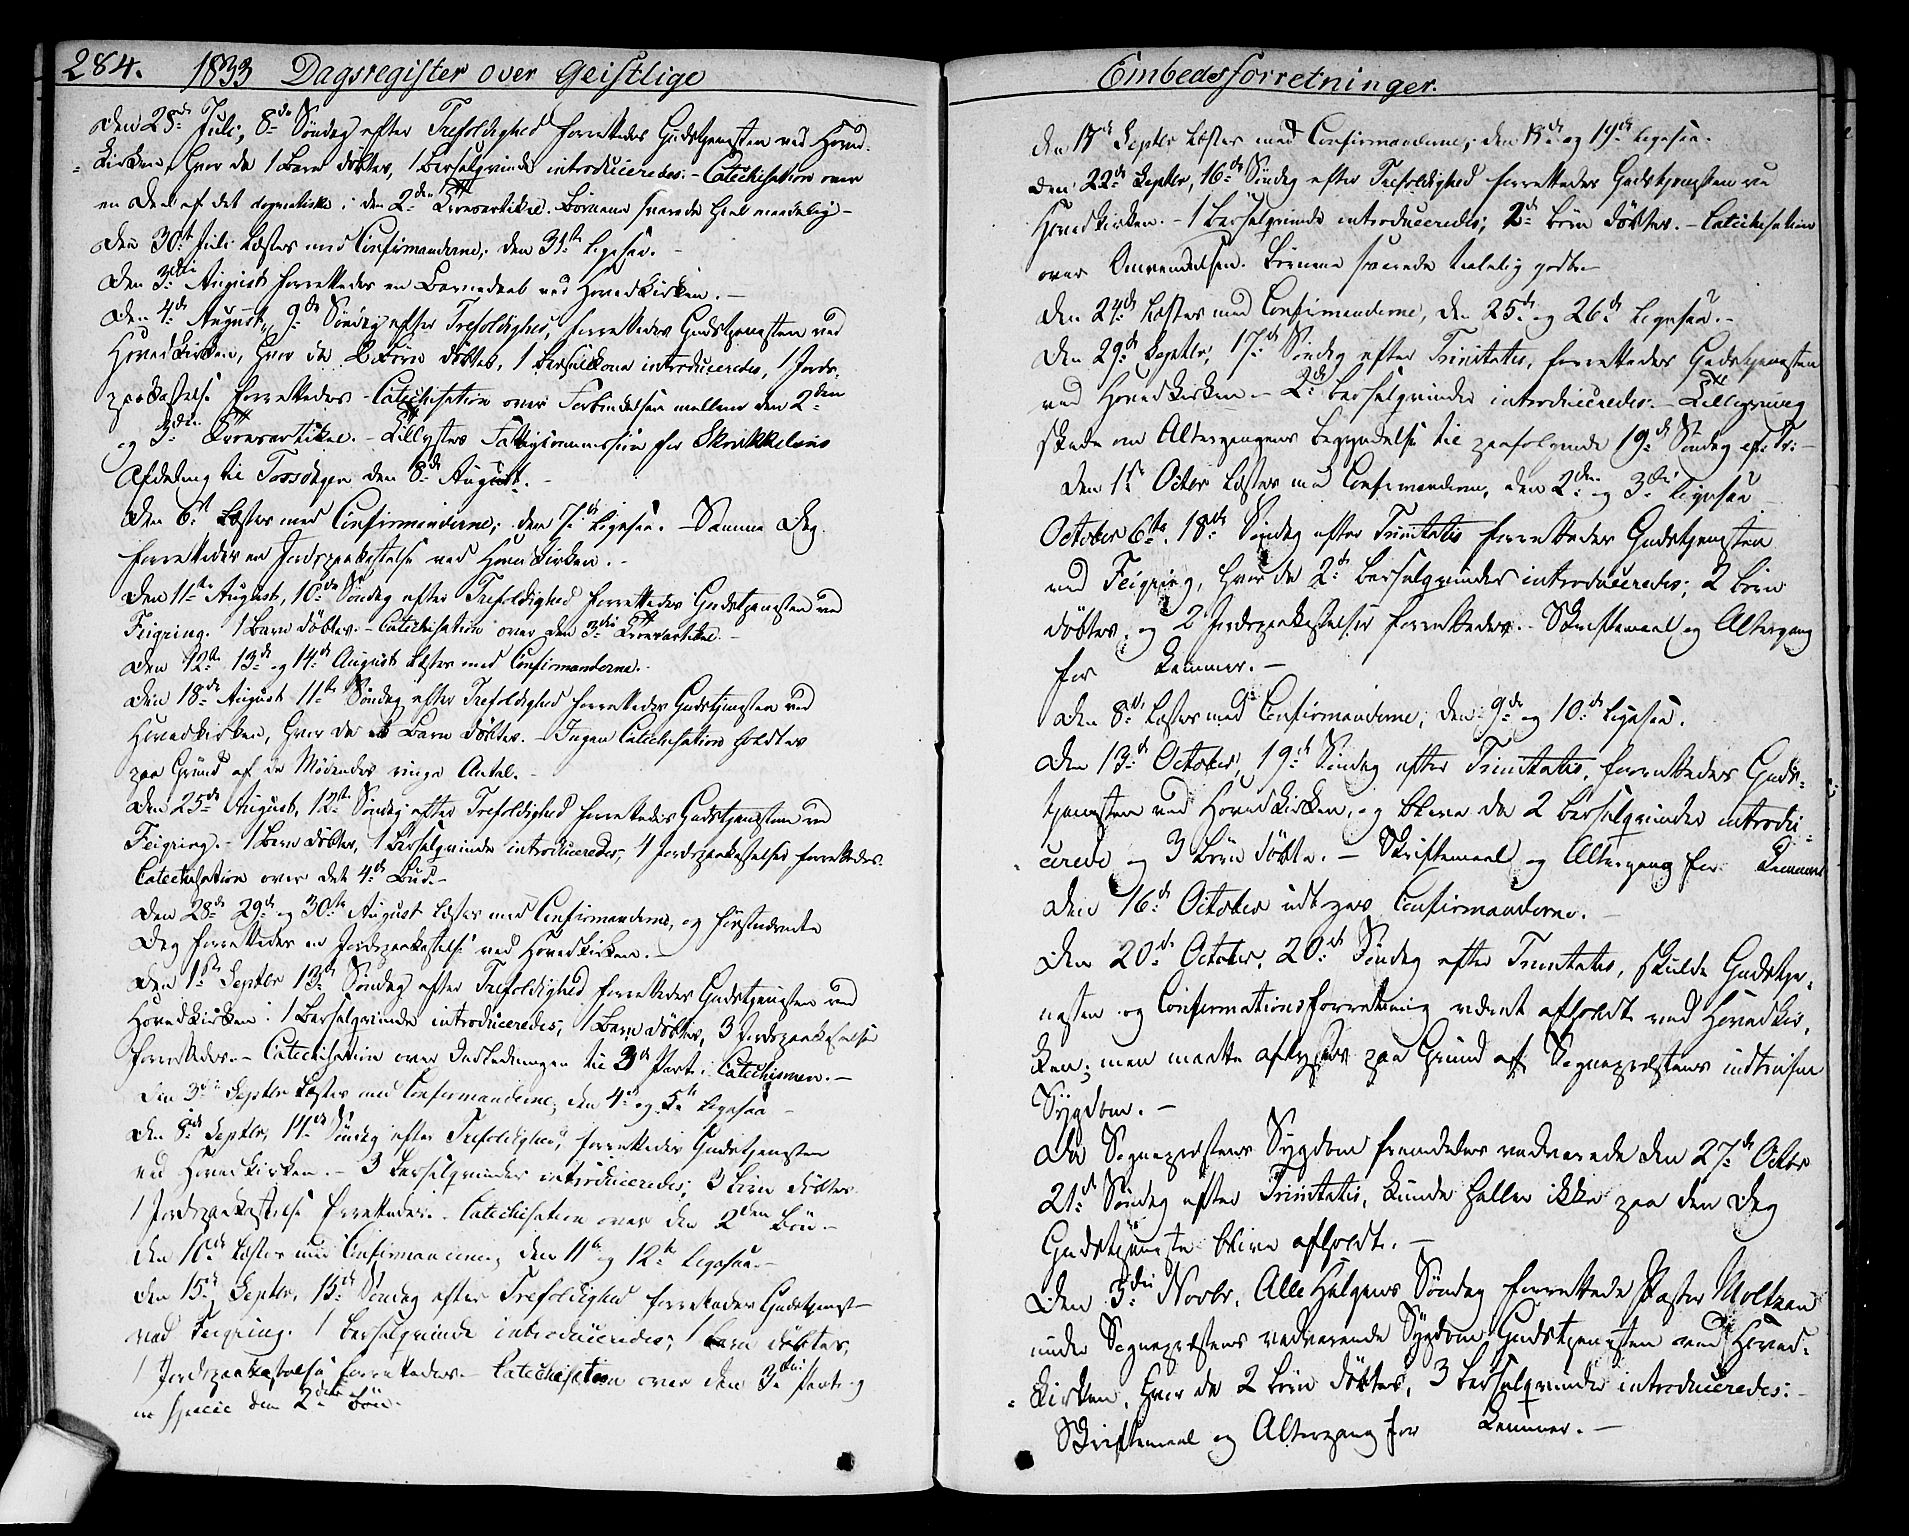 284. 1833 Dagsregister over Geistlige
Den 28de Juli, 8de Söndag efter Trefoldighed forrettedes Gudstjenesten ved Hoved-
kirken, hvor da 1 Barn döbtes, 1 Barselqvinde introduceredes. - Catechisation over
en Deel af det dogmatiske i den 2den Troesartikel. Börnene svarede heel maadelig -
Den 30te Juli læstes med Confirmanderne; den 31te ligesaa. -
Den 3die August forrettedes en Barnedaab ved Hovedkirken. -
Den 4de August, 9de Söndag efter Trefoldighed, forrettedes Gudstjenesten ved
Hovedkirken, hvor da Börn döbtes, 1 Barselkone introduceredes, 1 Jords-
paakastelse forrettedes - Catechisation over Forbindelsen mellem den 2den
og 3die Troesartikel. - Tillystes Fattigcommission for
Afdeling til Torsdagen den 8de August. -
Den 6te læstes med Confirmanderne; den 7de ligesaa. - Samme Dag
forrettedes en Jordspaakastelse ved Hovedkirken. -
Den 11te August, 10de Söndag efter Trefoldighed forrettedes Gudstjenesten ved
Feigring. 1 Barn döbtes. - Catechisation over den 3die Troesartikel. -
Den 12te 13de og 14de August læstes med Confirmanderne. -
Den 18de August 11te Söndag efter Trefoldighed forrettedes Gudstjenesten ved
Hovedkirken, hvor da et Barn döbtes. - Ingen Catechisation holdtes
paa Grund af de Mödendes ringe Antal. -
Den 25de August, 12te Söndag efter Trefoldighed forrettedes Gudstjenesten ved
Feigring. - 1 Barn döbtes, 1 Barselqvinde introduceredes, 4 Jordspaakastelser forrettedes.
Catechisation over det 4de Bud. -
Den 28de 29de og 30te August læstes med Confirmanderne, og förstnævnte
Dag forrettedes en Jordspaakastelse ved Hovedkirken. -
Den 1ste Septbr 13de Söndag efter Trefoldighed forrettedes Gudstjenesten ved
Hovedkirken. 1 Barselqvinde introduceredes, 1 Barn döbtes, 3 Jordspaakastelser
forrettedes. - Catechisation over Indledningen til 3de Part i Catechismen. -
Den 3die Septbr læstes med Confirmanderne, den 4de og 5te ligesaa -
Den 8de Septbr, 14de Söndag efter Trefoldighed, forrettedes Gudstjenesten
ved Hovedkirken. - 3 Barselqvinder introduceredes, 3 Börn döbtes
1 Jordspaakastelse forrettedes. - Catechisation over den 2den Bön -
Den 10de læstes med Confirmanderne, den 11te og 12te ligesaa. -
Den 15de Septbr, 15de Söndag efter Trefoldighed forrettedes Gudstjeneste
ved Feigring. 1 Barselqvinde introduceredes; 1 Barn döbtes,
1 Jordspaakastelse forrettedes - Catechisation over den 3die Part og
in specie den 2den Bön. -
Embedsforretninger.
Den 17de Septbr læstes med Confirmanderne, den 18de og 19de ligesaa.
Den 22de Septbr, 16de Söndag efter Trefoldighed forrettedes Gudstjenesten ved
Hovedkirken. - 1 Barselqvinde introduceredes; 2de Börn döbtes. - Catechisation
over Omvendelsen. Börnene svarede taalelig godt. -
Den 24de læstes med Confirmanderne, den 25de og 26de ligesaa. -
Den 29de Septbr, 17de Söndag efter Trinitatis, forrettedes Gudstjenesten
ved Hovedkirken - 2de Barselqvinder introduceredes. - Tillysning
skede om Altergangens Begyndelse til paafölgende 19de Söndag ef. Tr. -
Den 1ste Octbr læstes med Confirmanderne, den 2den og 3die ligesaa
October 6te, 18de Söndag efter Trinitatis forrettedes Gudstjenesten
ved Feigring, hvor da 2de Barselqvinder introduceredes; 2 Börn
döbtes, og 2 Jordspaakastelser forrettedes. - Skriftemaal og Altergang
for Lemmer. -
Den 8de læstes med Confirmanderne, den 9de og 10de ligesaa.
Den 13de October, 19de Söndag efter Trinitatis, forrettedes Guds-
tjenesten ved Hovedkirken, og bleve da 2 Barselqvinder introdu-
cerede og 3 Börn döbte. - Skriftemaal og Altergang for Lemmer
Den 16de October Confirmanderne. -
Den 20de October, 20de Söndag efter Trinitatis, skulde Gudstje-
nesten og Confirmationsforretning været afholdt ved Hovedkir-
ken; men maatte aflyses paa Grund af Sognepræstens indtrufne
Sygdom. -
Da Sognepræstens Sygdom fremdeles vedvarede den 27de Octbr
21de Söndag efter Trinitatis, kunde heller ikke paa den Dag
Gudstjeneste blive afholdt. -
Den 3die Novbr, Alle Helgens Söndag forrettede Pastor Moltzau
under Sognepræstens vedvarende Sygdom Gudstjenesten ved Hoved-
kirken, hvor da 2 Börn döbtes, 3 Barselqvinder introduceredes. -
Skriftemaal og Altergang for Lemmer. -